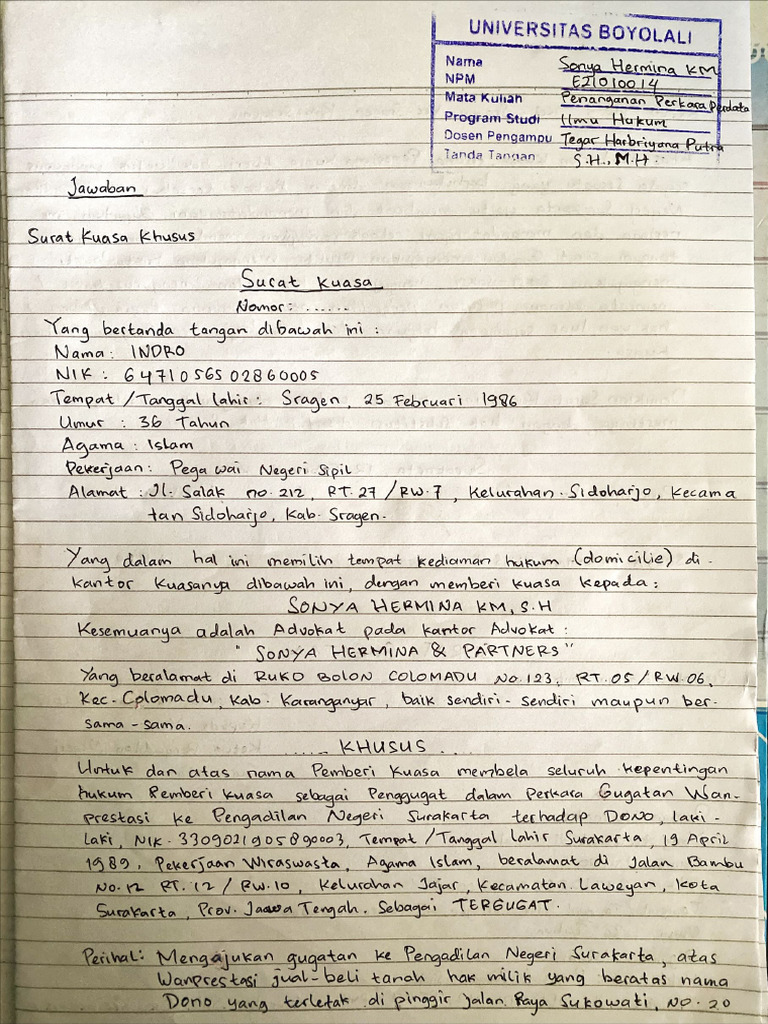 UNIVERSITAS BOYOLALI
Nama Sonya Hermina KM
NPM E21010014
Mata Kuliah Penanganan Perkara Perdata
Program Studi Ilmu Hukum
Dosen Pengampu Tegar Harbriyana Putra
Tanda Tangan S.H., M.H
Jawaban
Surat Kuasa Khusus
Surat Kuasa
Nomor: ......
Yang bertanda tangan dibawah ini :
Nama : INDRO
NIK : 6471056502860005
Tempat /Tanggal lahir : Sragen, 25 Februari 1986
Umur : 36 Tahun
Agama : Islam
Pekerjaan : Pegawai Negeri Sipil
Alamat : Jl. Salak no. 212, RT. 27 / RW. 7, Kelurahan. Sidoharjo, Kecama
tan Sidoharjo, Kab. Sragen.
Yang dalam hal ini memilih tempat kediaman hukum (domicilie) di-
kantor Kuasanya dibawah ini, dengan memberi kuasa kepada :
SONYA HERMINA KM, S.H
Kesemuanya adalah Advokat pada kantor Advokat :
" SONYA HERMINA & PARTNERS"
Yang beralamat di RUKO BOLON COLOMADU No. 123, RT. 05 / RW. 06,
Kec. Colomadu, Kab. Karanganyar, baik sendiri-sendiri maupun ber-
sama-sama.
...... KHUSUS ....
Untuk dan atas nama Pemberi Kuasa membela seluruh kepentingan
hukum Pemberi Kuasa sebagai Penggugat dalam Perkara Gugatan Wan-
prestasi ke Pengadilan Negeri Surakarta terhadap DONO, laki-
laki, NIK. 3309021905890003, Tempat /Tanggal lahir Surakarta, 19 April
1989, Pekerjaan Wiraswasta, Agama Islam, beralamat di Jalan Bambu
No. 12 RT. 12 / RW. 10, Kelurahan Jajar, Kecamatan. Laweyan, Kota
Surakarta, Prov. Jawa Tengah. Sebagai TERGUGAT.
Perihal: Mengajukan gugatan ke Pengadilan Negeri Surakarta, atas
Wanprestasi jual-beli tanah hak milik yang beratas nama
Dono yang terletak di pinggir jalan Raya Sukowati, No. 20